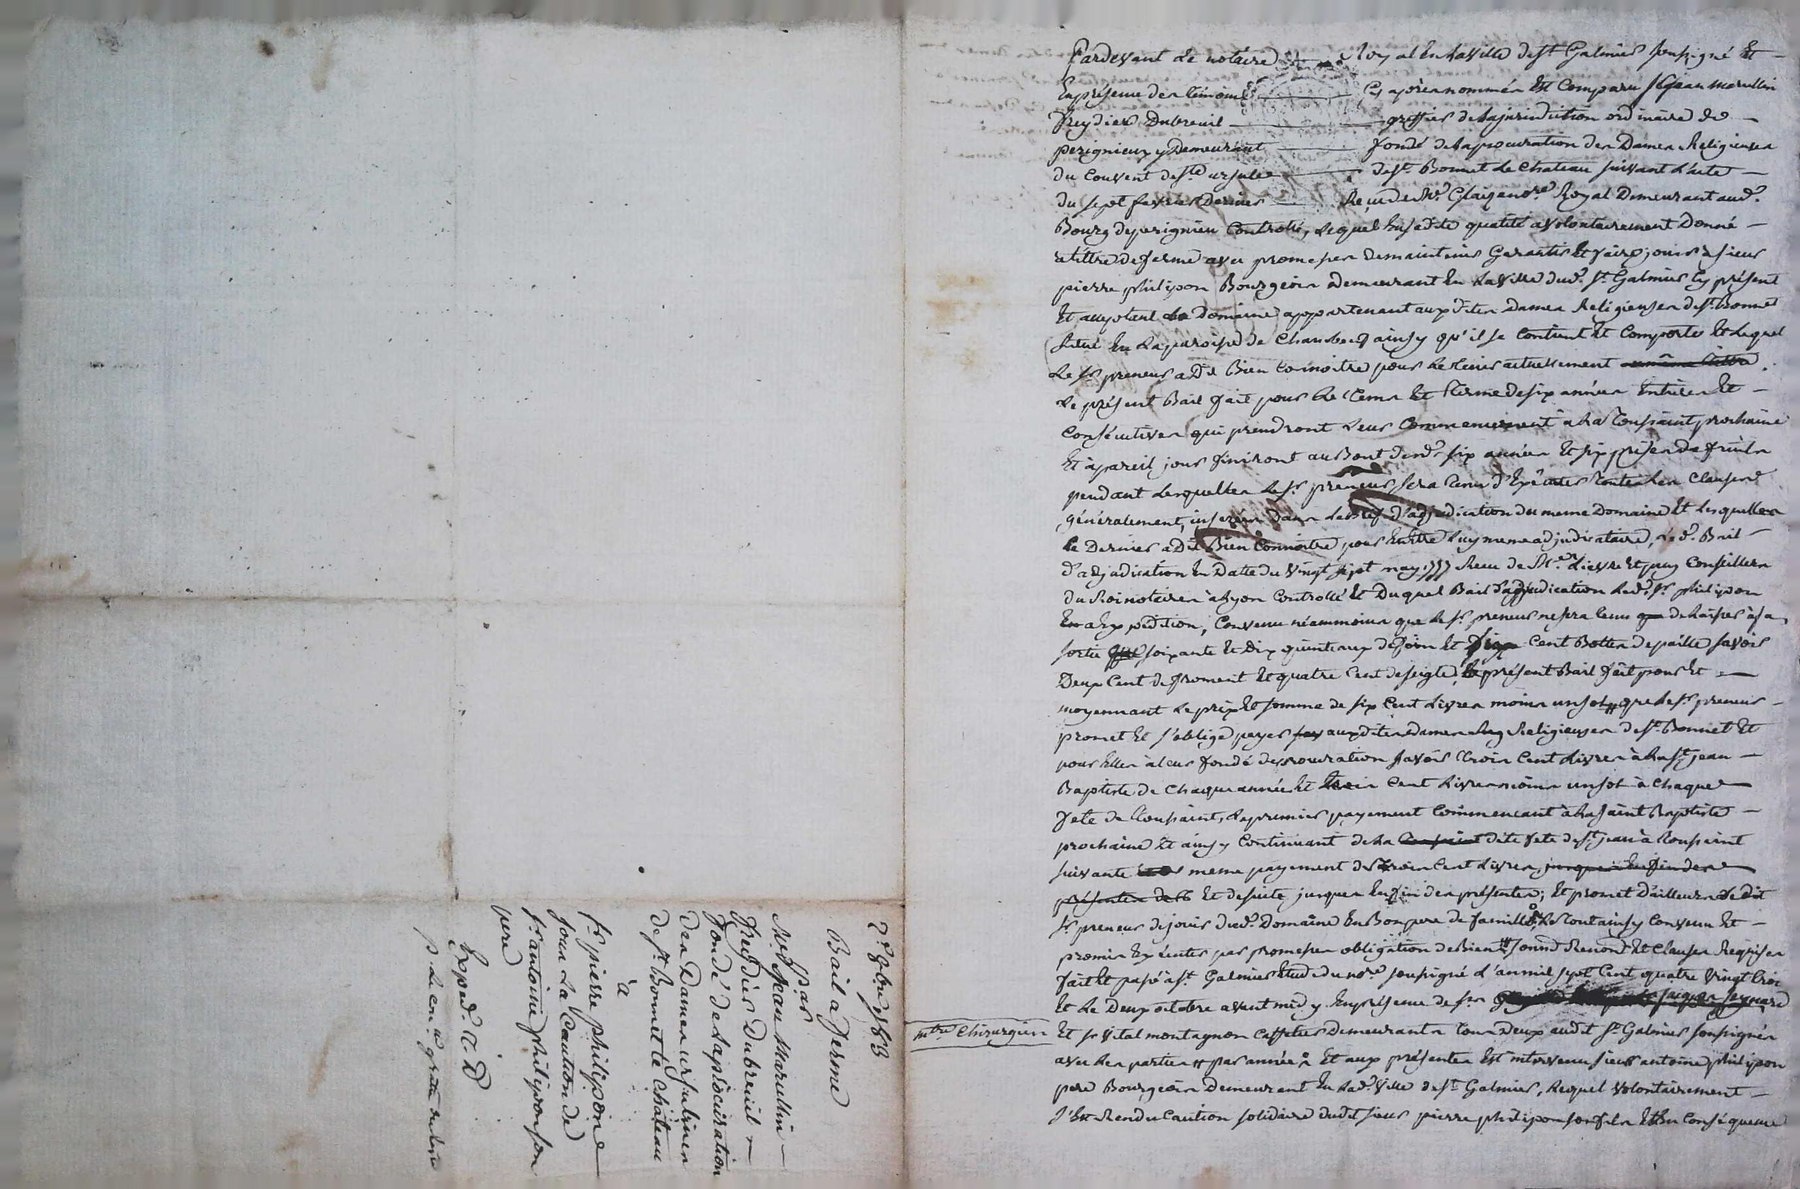 2e 8bre 1783
Bail a ferme
par
Me Jean Marcellin
Preydier Dubreuil
fondé de la procuration
des Dames ursulines
de st Bonnet le Château
à
sr pierre philipon
sous la Caution de
sr antoine philipon son
pere
Exped. C. D
Pardevant Le notaire Royal En la ville de st Galmier soussigné Et
En présence des témoins Cy après nommés Est Comparu sr jean marcellin
Preydier Dubreuil greffier de la jurisdiction ordinaire de
perignieux y Demeurant fondé de la procuration des Dames Religieuses
du Couvent de ste ursule de st Bonnet Le Chateau suivant L'acte
du sept fevrier Dernier Reçu de Me nore Royal Demeurant aud.
Bourg de perignieu Controllé, Lequel En sadite qualité a volontairement Donné
a tittre de ferme avec promesses de maintenir Garantir Et faire jouir à sieur
pierre philipon Bourgeois Demeurant En La ville dud. st Galmier Cy présent
Et acceptant Le Domaine appartenant auxdites Dames Religieuses de st Bonnet
situé En La paroisse de Chambœuf ainsy qu'il se Contient Et Comporte Et Lequel
Le sr preneur a Dit Bien Connoitre pour Le tenir actuellement
Le présent Bail fait pour Le tems Et terme de six années Entieres Et
Consécutives qui prendront Leur Commencement à La Toussaint prochaine
Et à pareil jour finiront au Bout desd. six années Et six prises de fruits
pendant Lesquelles Le sr preneur sera tenu d'Exécuter toutes Les Clauses
généralement, inserées Dans Le Bail d'adjudication du meme Domaine Et Lesquelles
Le Dernier a Dit Bien Connoitre pour En être Luy meme adjudicataire, Led. Bail
d'adjudication En Datte du vingt sept may 1777 Reçu de Mes Conseillers
du Roi notaires à Lyon Controllé Et Duquel Bail d'adjudication Led. sr philipon
En a Expédition, Convenu néammoins que Le sr preneur ne sera tenu de Laisser à sa
sortie soixante Et Dix quintaux de foin Et six Cent Bottes de paille savoir
Deux Cent de froment Et quatre Cent de seigle, Le présent Bail fait pour Et
moyennant Le prix Et somme de six Cent Livres moins un sol que Le sr preneur
promet Et s'oblige payer auxdites Dames Religieuses de st Bonnet Et
pour Elles à Leur fondé de procuration savoir trois Cent Livres à La st jean
Baptiste de Chaque année Et trois Cent Livres moins un sol à Chaque
fete de Toussaint, Le premier payement Commencant à La saint Baptiste
prochaine Et ainsy Continuant de La dite fete de st jean à Toussaint
suivante meme payement de trois Cent Livres
Et de suite jusques En fin des présentes; Et promet D'ailleurs Ledit
sr preneur de jouir dud. Domaine En Bon pere de famille, Le tout ainsy Convenu Et
promis Exécuter par promesses obligation de Biens soumis. Renonc. Et Clauses Requises
fait Et passé à st Galmier Etude du nore soussigné L'an mil sept Cent quatre vingt trois
Et Le Deux octobre avant midy En présence de srs
mtre Chirurgien
Et sr vital montagnon Caffetier Demeurants tous Deux audit st Galmier soussignés
avec Les parties par année Et aux présentes Est intervenu sieur antoine philipon
pere Bourgeois Demeurant En Lad. ville de st Galmier, Lequel volontairement
s'Est Rendu Caution solidaire dudit sieur pierre philipon son fils Et En Conséquence